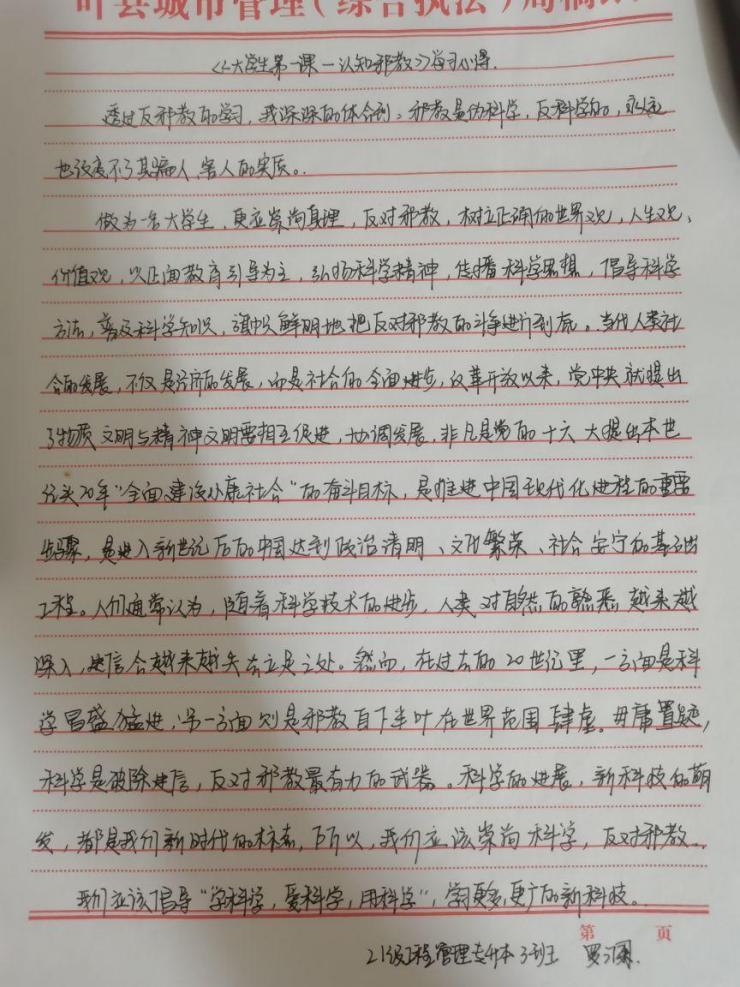 叶县城市管理(综合执法)局稿纸
《<大学生第一课—认知邪教>》学习心得.
透过反邪教的学习,我深深的体会到:邪教是伪科学,反科学的,永远
也改变不了其骗人,害人的实质。
做为一名大学生,更应崇尚真理,反对邪教,树立正确的世界观,人生观、
价值观,以正面教育引导为主,弘扬科学精神,传播科学思想,倡导科学
方法,普及科学知识,旗帜鲜明地把反对邪教的斗争进行到底。当代人类社
会的发展,不仅是经济的发展,而是社会的全面进步,改革开放以来,党中央就提出
了物质文明与精神文明要相互促进,协调发展,非凡是党的十六大提出本世
纪头20年“全面建设小康社会”的奋斗目标,是推进中国现代化进程的重要
步骤,是进入新世纪后的中国达到政治清明、文化繁荣、社会安宁的基础
工程。人们通常认为,随着科学技术的进步,人类对自然的熟悉越来越
深入,迷信会越来越失去立足之处。然而,在过去的20世纪里,一方面是科
学昌盛猛进,另一方面则是邪教自下半叶在世界范围肆虐。毋庸置疑,
科学是破除迷信,反对邪教最有力的武器。科学的进展,新科技的萌
发,都是我们新时代的标志,所以,我们应该崇尚科学,反对邪教。
我们应该倡导“学科学,爱科学,用科学”,学更多,更广的新科技。
第 页
21级工程管理专升本3班